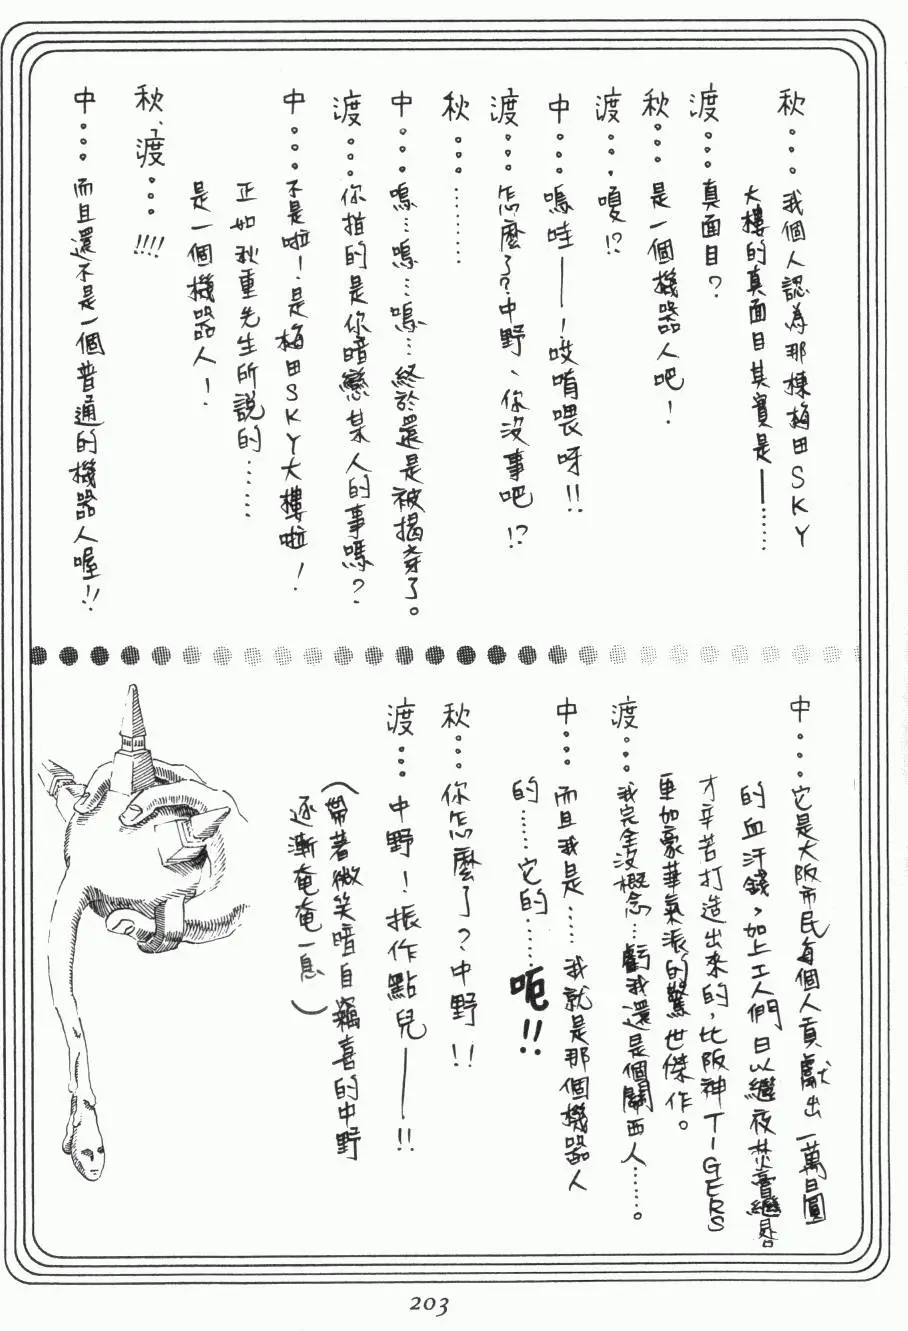 秋・・・我個人認為那棟梅田SKY
大樓的真面目其實是——……
渡・・・・真面目？
秋・・・・是一個機器人吧！
渡・・・・嗄！？
中・・・・嗚哇——！哎唷喂呀！！
渡・・・・怎麼了？中野、你沒事吧！？
秋・・・・………
中・・・・嗚…嗚…嗚…終於還是被揭穿了。
渡・・・・你指的是你暗戀某人的事嗎？
中・・・・不是啦！是梅田SKY大樓啦！
正如秋重先生所說的……
是一個機器人！
秋、渡・・・・!!!!
中・・・・而且還不是一個普通的機器人喔！！
中・・・・它是大阪市民每個人貢獻出一萬日圓
的血汗錢，加上工人們日以繼夜焚膏繼晷
才辛苦打造出來的，比阪神TIGERS
更加豪華氣派的驚世傑作。
渡・・・・我完全沒概念…虧我還是個關西人……。
中・・・・而且我是……我就是那個機器人
的……它的……呃！！
秋・・・・你怎麼了？中野！！
渡・・・・中野！振作點兒——！！
（帶著微笑暗自竊喜的中野
逐漸奄奄一息）
203